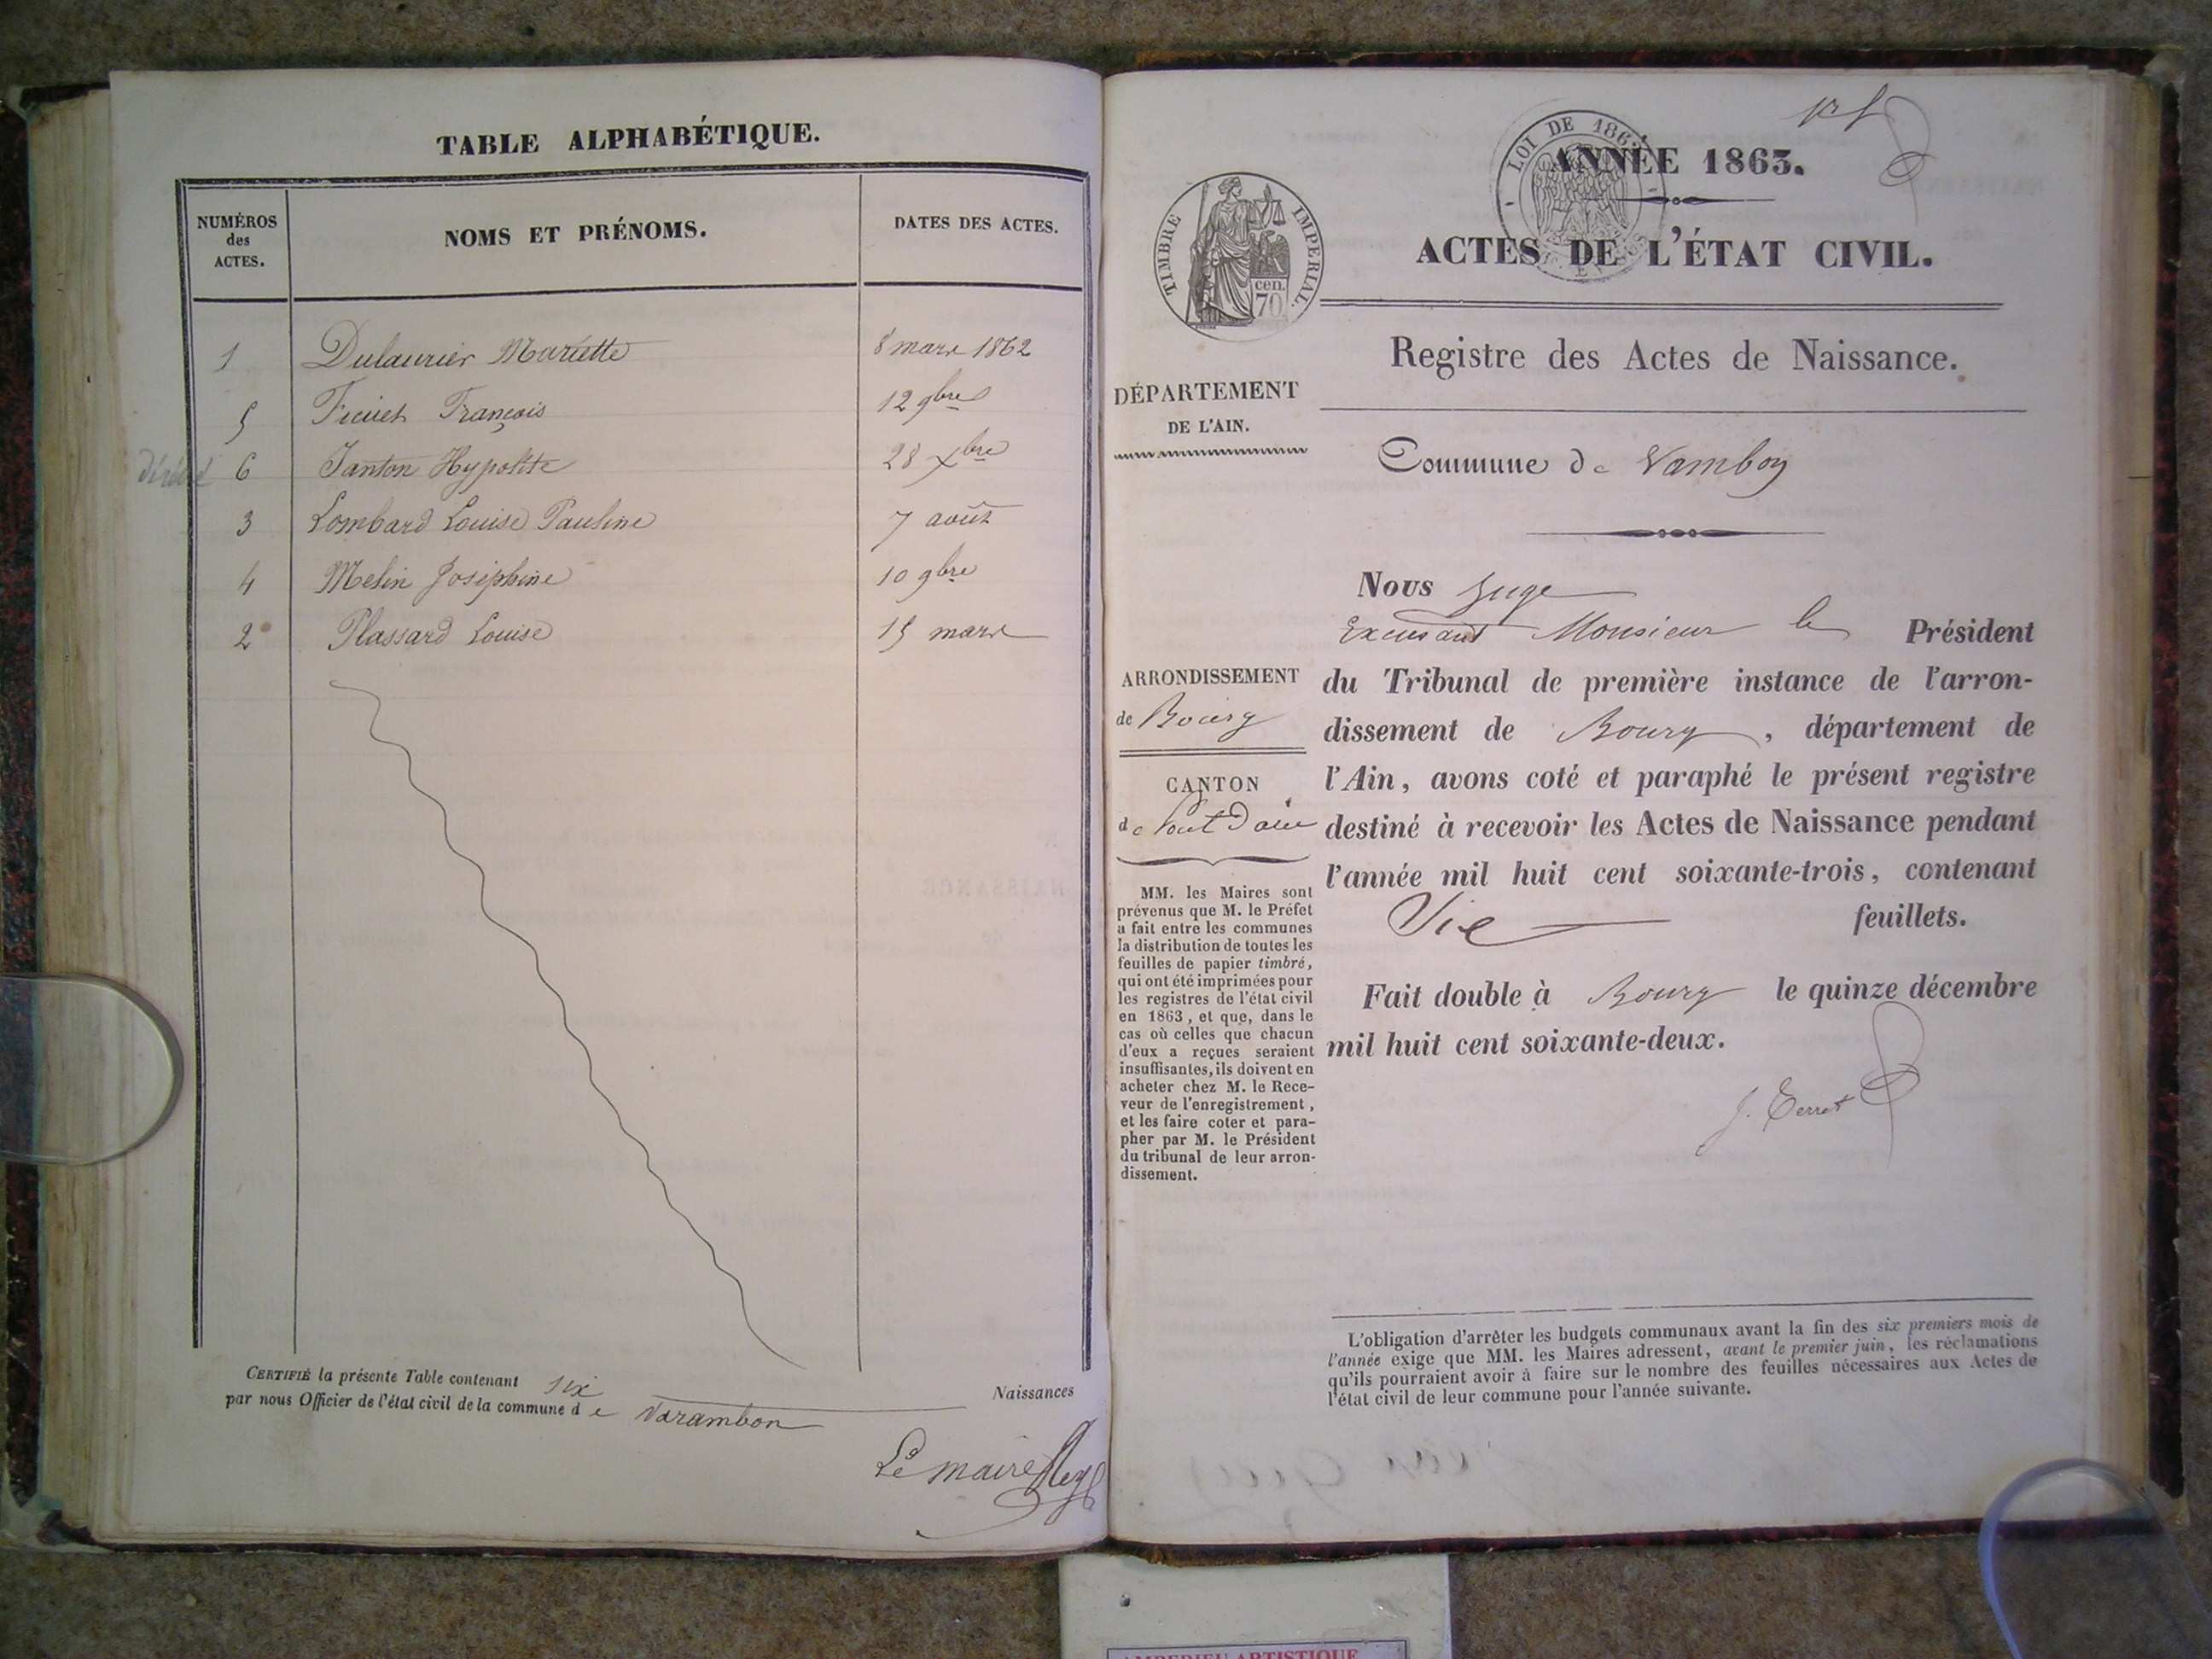 TABLE ALPHABÉTIQUE.
NUMÉROS
des
ACTES.
NOMS ET PRÉNOMS.
DATES DES ACTES.
1 Dulaurier Mariette 8 mars 1862
5 François 12 9bre
6 Janton Hypolite 28 Xbre
3 Lombard Louise Pauline 7 août
4 Melin Joséphine 10 9bre
2 Plassard Louise 15 mars
CERTIFIÉ la présente Table contenant six Naissances
par nous Officier de l'état civil de la commune de Varambon
Le maire
LOI DE 186
ANNÉE 1863.
ACTES DE L'ÉTAT CIVIL.
TIMBRE IMPERIAL.
cen.
70
Registre des Actes de Naissance.
DÉPARTEMENT
DE L'AIN.
Commune de
Nous Juge
Excusant Monsieur le Président
ARRONDISSEMENT
de Bourg
du Tribunal de première instance de l'arron-
dissement de Bourg, département de
l'Ain, avons coté et paraphé le présent registre
destiné à recevoir les Actes de Naissance pendant
l'année mil huit cent soixante-trois, contenant
Six feuillets.
Fait double à Bourg le quinze décembre
mil huit cent soixante-deux.
CANTON
de Pont d'ain
MM. les Maires sont
prévenus que M. le Préfet
a fait entre les communes
la distribution de toutes les
feuilles de papier timbré,
qui ont été imprimées pour
les registres de l'état civil
en 1863, et que, dans le
cas où celles que chacun
d'eux a reçues seraient
insuffisantes, ils doivent en
acheter chez M. le Rece-
veur de l'enregistrement,
et les faire coter et para-
pher par M. le Président
du tribunal de leur arron-
dissement.
J. Terret
L'obligation d'arrêter les budgets communaux avant la fin des six premiers mois de
l'année exige que MM. les Maires adressent, avant le premier juin, les réclamations
qu'ils pourraient avoir à faire sur le nombre des feuilles nécessaires aux Actes de
l'état civil de leur commune pour l'année suivante.
AMBERIEU ARTISTIQUE